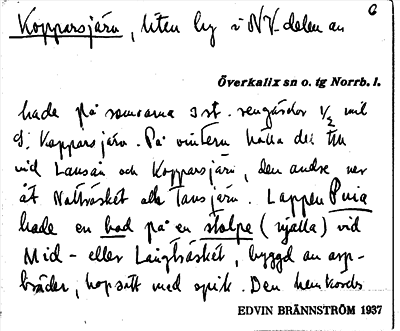 6
Kopparsjärv, liten by i NV-delen av
Överkalix sn o. tg Norrb. l.
hade på somrarna 3 st. rengärdor ½ mil
Kopparsjärv. På vintern hålla de till
vid Lansån och Kopparsjärv, den andre ner
åt Nattträsket alla Tansjärv. Lappen Puia
hade en bod på en stolpe (njalla) vid
Mid- eller Långträsket, byggd av asp-
bräder, hopsatt med spik. Den
EDVIN BRÄNNSTRÖM 1937